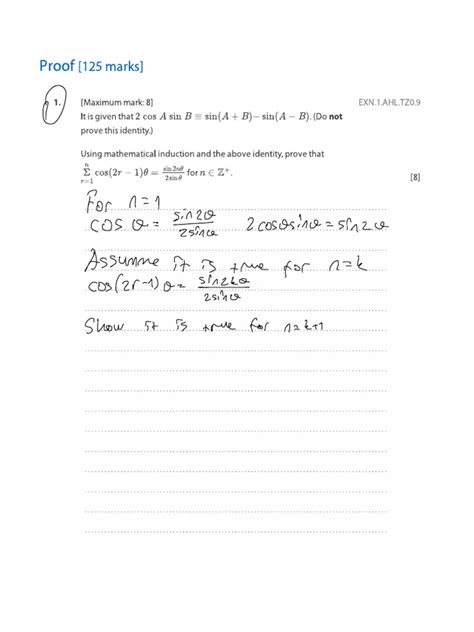 Proof [125 marks]
1. [Maximum mark: 8] EXN.1.AHL.TZ0.9
It is given that 2 cos A sin B ≡ sin(A + B)− sin(A − B). (Do not
prove this identity.)
Using mathematical induction and the above identity, prove that
n Σ r=1 cos(2r − 1)θ = sin 2nθ / 2 sin θ for n ∈ ℤ⁺.
[8]
For n=1
cos θ = sin2θ / 2sinθ 2cosθsinθ = sin2θ
Assume it is true for n=k
cos(2r-1)θ = sin2kθ / 2sinθ
Show it is true for n=k+1